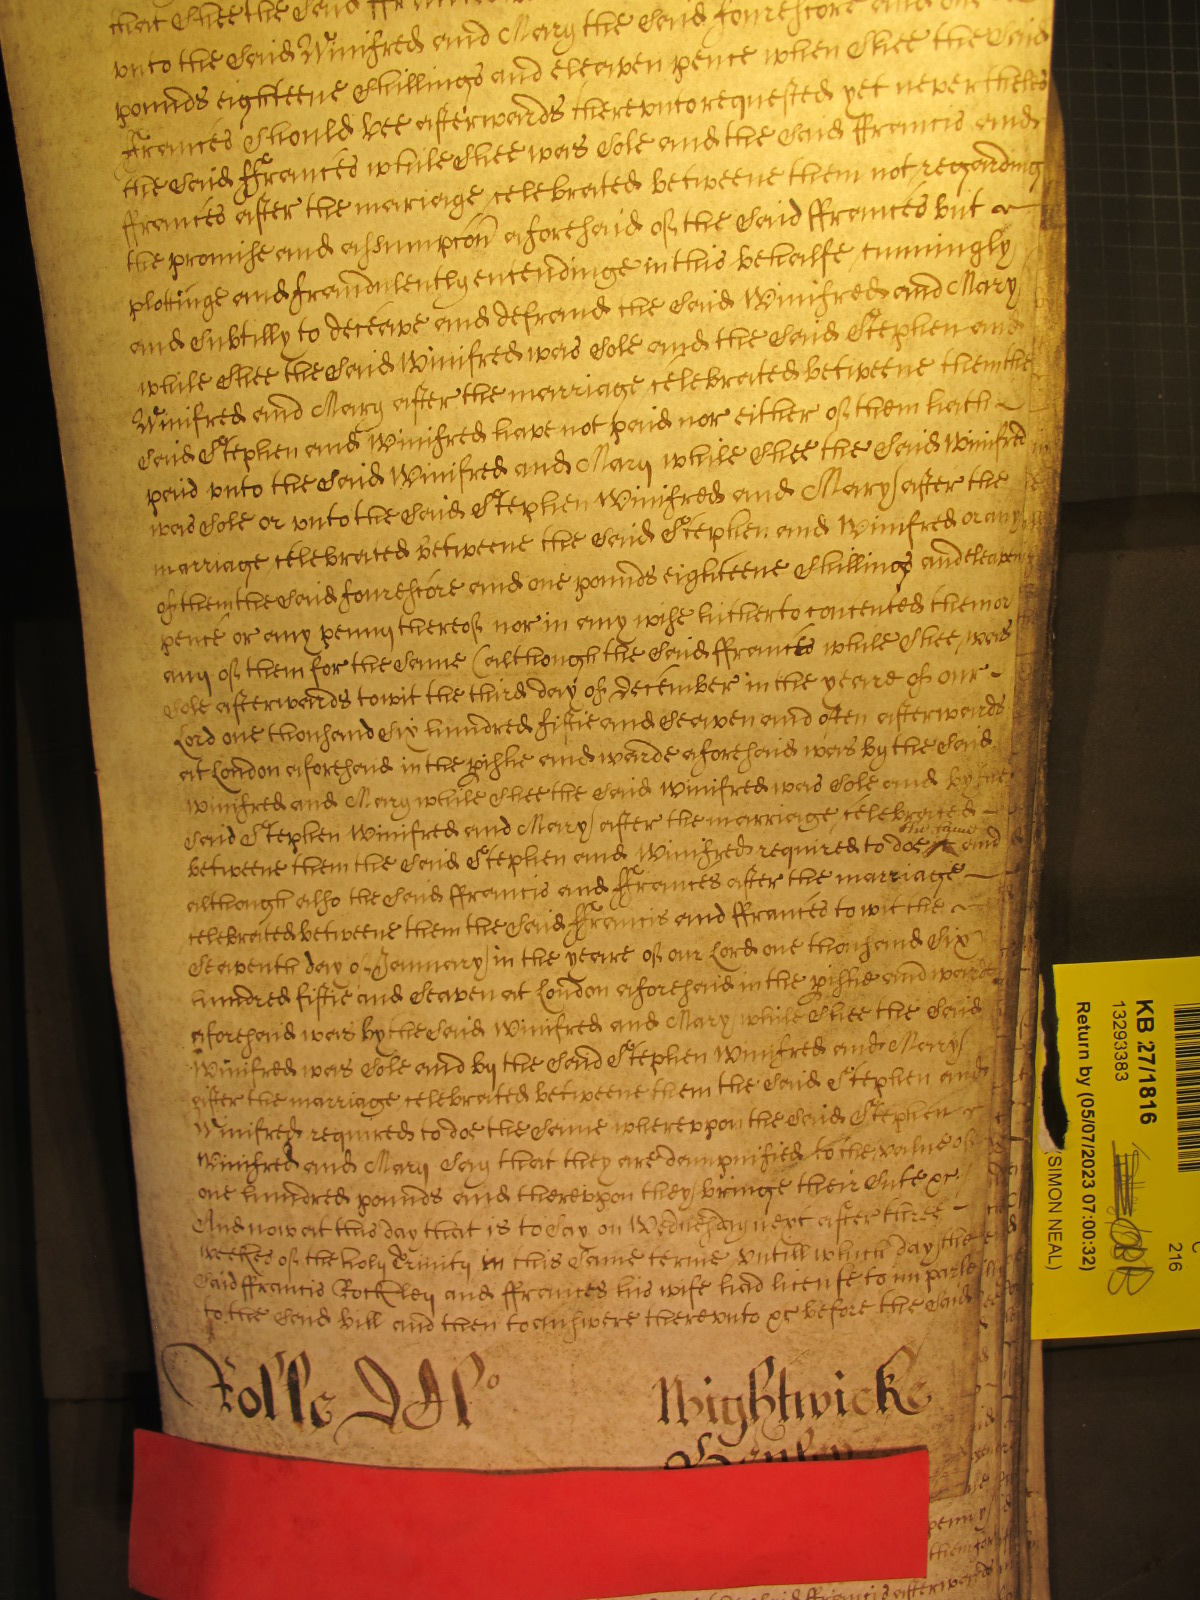 that Shee the said
vnto the said Winifred and Mary the said fourescore and one
pounds eighteene Shillings and eleaven pence when Shee the said
Frances should bee afterwards therevnto requested yet nevertheles
the said ffrances while Shee was sole and the said ffrancis and
ffrances after the mariage celebrated betweene them not regarding
the promise and assumpcon aforesaid of the said ffrances but
plottinge and fraudulently entendinge in this behalfe cunningly
and subtilly to deceave and defraud the said Winifred and Mary
while Shee the said Winifred was sole and the said Stephen and
Winifred and Mary after the marriage celebrated betweene them the
said Stephen and Winifred have not paid nor either of them hath
paid vnto the said Winifred and Mary while Shee the said Winifred
was sole or vnto the said Stephen Winifred and Mary after the
marriage celebrated betweene the said Stephen and Winifred or any
of them the said fourescore and one pounds eighteene Shillings and eleaven
pence or any penny thereof nor in any wise hitherto contented them or
any of them for the same (although the said ffrances while Shee was
sole afterwards to wit the third day of December in the yeare of our
Lord one thousand six hundred fiftie and seaven and often afterwards
at London aforesaid in the pishe and warde aforesaid was by the said
Winifred and Mary while Shee the said Winifred was sole and by the
said Stephen Winifred and Mary after the marriage celebrated
betweene them the said Stephen and Winifred required to doe the same and
although also the said ffrancis and ffrances after the marriage
celebrated betweene them the said ffrancis and ffrances to wit the
Seaventh day of January in the yeare of our Lord one thousand six
hundred fiftie and seaven at London aforesaid in the pishe and warde
aforesaid was by the said Winifred and Mary while Shee the said
Winifred was sole and by the said Stephen Winifred and Mary
after the marriage celebrated betweene them the said Stephen and
Winifred required to doe the same wherevpon the said Stephen
Winifred and Mary say that they are dampnified to the value of
one hundred pounds and therevpon they bringe their sute &c.
And now at this day that is to say on Wednesday next after three
weekes of the holy Trinity in this same terme vntill which day the
said ffrancis Rockley and ffrances his wife had license to imparle
to the said bill and then to answere therevnto &c before the said
Rolle
Nightwicke
KB 27/1816
13293383
Return by (05/07/2023 07:00:32)
(SIMON NEAL)
216